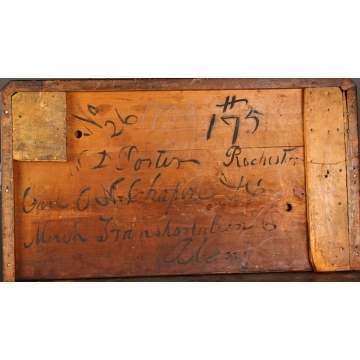 No 26 # 175
D Porter Rochester
Care O N Chapin & Co
Merch Transportation C
Albany